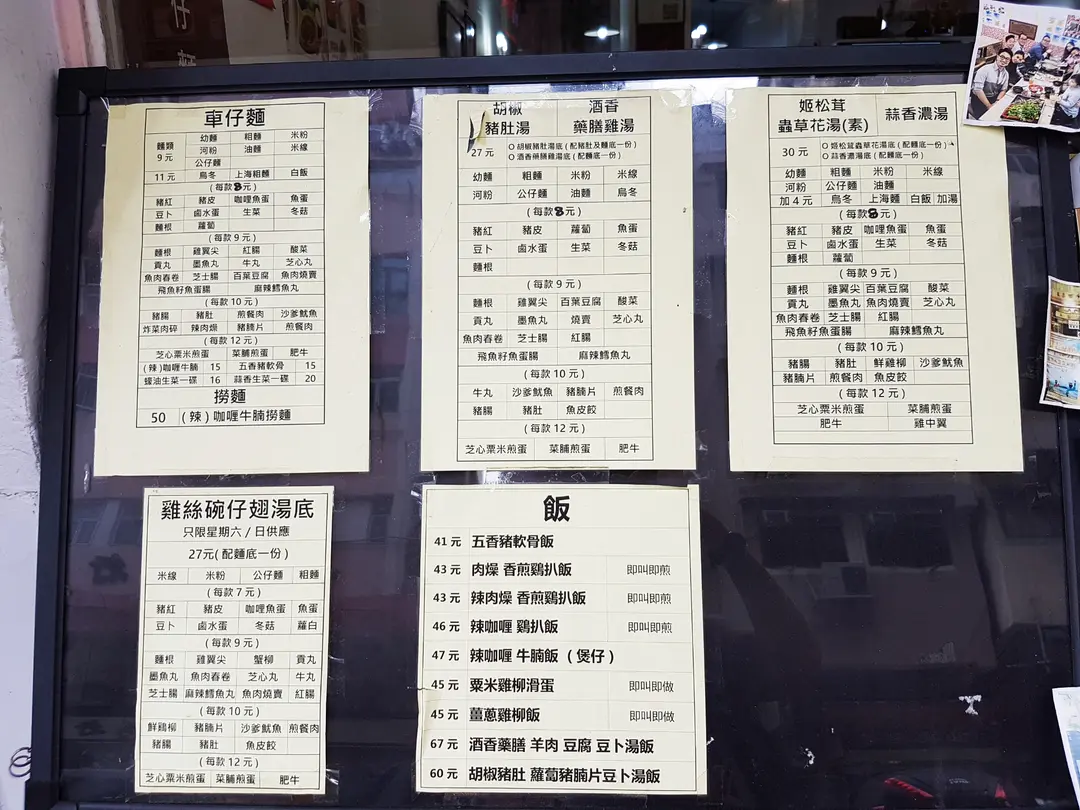 車仔麵
麵類 9元 幼麵 粗麵 米粉
河粉 油麵 米線
公仔麵
11元 烏冬 上海粗麵 白飯
(每款8元)
豬紅 豬皮 咖喱魚蛋 魚蛋
豆卜 鹵水蛋 生菜 冬菇
麵根 蘿蔔
(每款9元)
麵根 雞翼尖 紅腸 酸菜
貢丸 墨魚丸 牛丸 芝心丸
魚肉春卷 芝士腸 百葉豆腐 魚肉燒賣
飛魚籽魚蛋腸 麻辣鱈魚丸
(每款10元)
豬腸 豬肚 煎餐肉 沙爹魷魚
炸菜肉碎 辣肉燥 豬腩片 煎餐肉
(每款12元)
芝心粟米煎蛋 菜脯煎蛋 肥牛
(辣)咖喱牛腩 15 五香豬軟骨 15
蠔油生菜一碟 16 蒜香生菜一碟 20
撈麵
50 (辣)咖喱牛腩撈麵
胡椒豬肚湯 酒香藥膳雞湯
27元 ○胡椒豬肚湯底(配豬肚及麵底一份)
○酒香藥膳雞湯底(配麵底一份)
幼麵 粗麵 米粉 米線
河粉 公仔麵 油麵 烏冬
(每款8元)
豬紅 豬皮 蘿蔔 魚蛋
豆卜 鹵水蛋 生菜 冬菇
麵根
(每款9元)
麵根 雞翼尖 百葉豆腐 酸菜
貢丸 墨魚丸 燒賣 芝心丸
魚肉春卷 芝士腸 紅腸
飛魚籽魚蛋腸 麻辣鱈魚丸
(每款10元)
牛丸 沙爹魷魚 豬腩片 煎餐肉
豬腸 豬肚 魚皮餃
(每款12元)
芝心粟米煎蛋 菜脯煎蛋 肥牛
姬松茸蟲草花湯(素) 蒜香濃湯
30元 ○姬松茸蟲草花湯底(配麵底一份)
○蒜香濃湯底(配麵底一份)
幼麵 粗麵 米粉 米線
河粉 公仔麵 油麵
加4元 烏冬 上海麵 白飯 加湯
(每款8元)
豬紅 豬皮 咖喱魚蛋 魚蛋
豆卜 鹵水蛋 生菜 冬菇
麵根 蘿蔔
(每款9元)
麵根 雞翼尖 百葉豆腐 酸菜
貢丸 墨魚丸 魚肉燒賣 芝心丸
魚肉春卷 芝士腸 紅腸
飛魚籽魚蛋腸 麻辣鱈魚丸
(每款10元)
豬腸 豬肚 鮮雞柳 沙爹魷魚
豬腩片 煎餐肉 魚皮餃
(每款12元)
芝心粟米煎蛋 菜脯煎蛋
肥牛 雞中翼
雞絲碗仔翅湯底
只限星期六/日供應
27元(配麵底一份)
米線 米粉 公仔麵 粗麵
(每款7元)
豬紅 豬皮 咖喱魚蛋 魚蛋
豆卜 鹵水蛋 冬菇 蘿白
(每款9元)
麵根 雞翼尖 蟹柳 貢丸
墨魚丸 魚肉春卷 芝心丸 牛丸
芝士腸 麻辣鱈魚丸 魚肉燒賣 紅腸
(每款10元)
鮮鷄柳 豬腩片 沙爹魷魚 煎餐肉
豬腸 豬肚 魚皮餃
(每款12元)
芝心粟米煎蛋 菜脯煎蛋 肥牛
飯
41元 五香豬軟骨飯
43元 肉燥 香煎鷄扒飯 即叫即煎
43元 辣肉燥 香煎鷄扒飯 即叫即煎
46元 辣咖喱 鷄扒飯 即叫即煎
47元 辣咖喱 牛腩飯 (煲仔)
45元 粟米雞柳滑蛋 即叫即做
45元 薑蔥雞柳飯 即叫即做
67元 酒香藥膳 羊肉 豆腐 豆卜湯飯
60元 胡椒豬肚 蘿蔔豬腩片豆卜湯飯